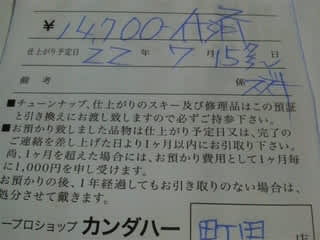 ¥ 14,700- 代済
仕上がり予定日 22 年 7 月 15 日
備考 係
■チューンナップ、仕上がりのスキー及び修理品はこの預証
と引き換えにお渡し致しますので必ずご持参下さい。
■お預かり致しました品物は仕上がり予定日又は、完了の
ご連絡を差し上げた日より1ヶ月以内にお引取り下さい。
尚、1ヶ月を超えた場合には、お預かり費用として1ヶ月毎
に1,000円を申し受けます。
お預かりの後、1年経過してもお引き取りのない場合は、
処分させて戴きます。
ープロショップ カンダハー 町田 店